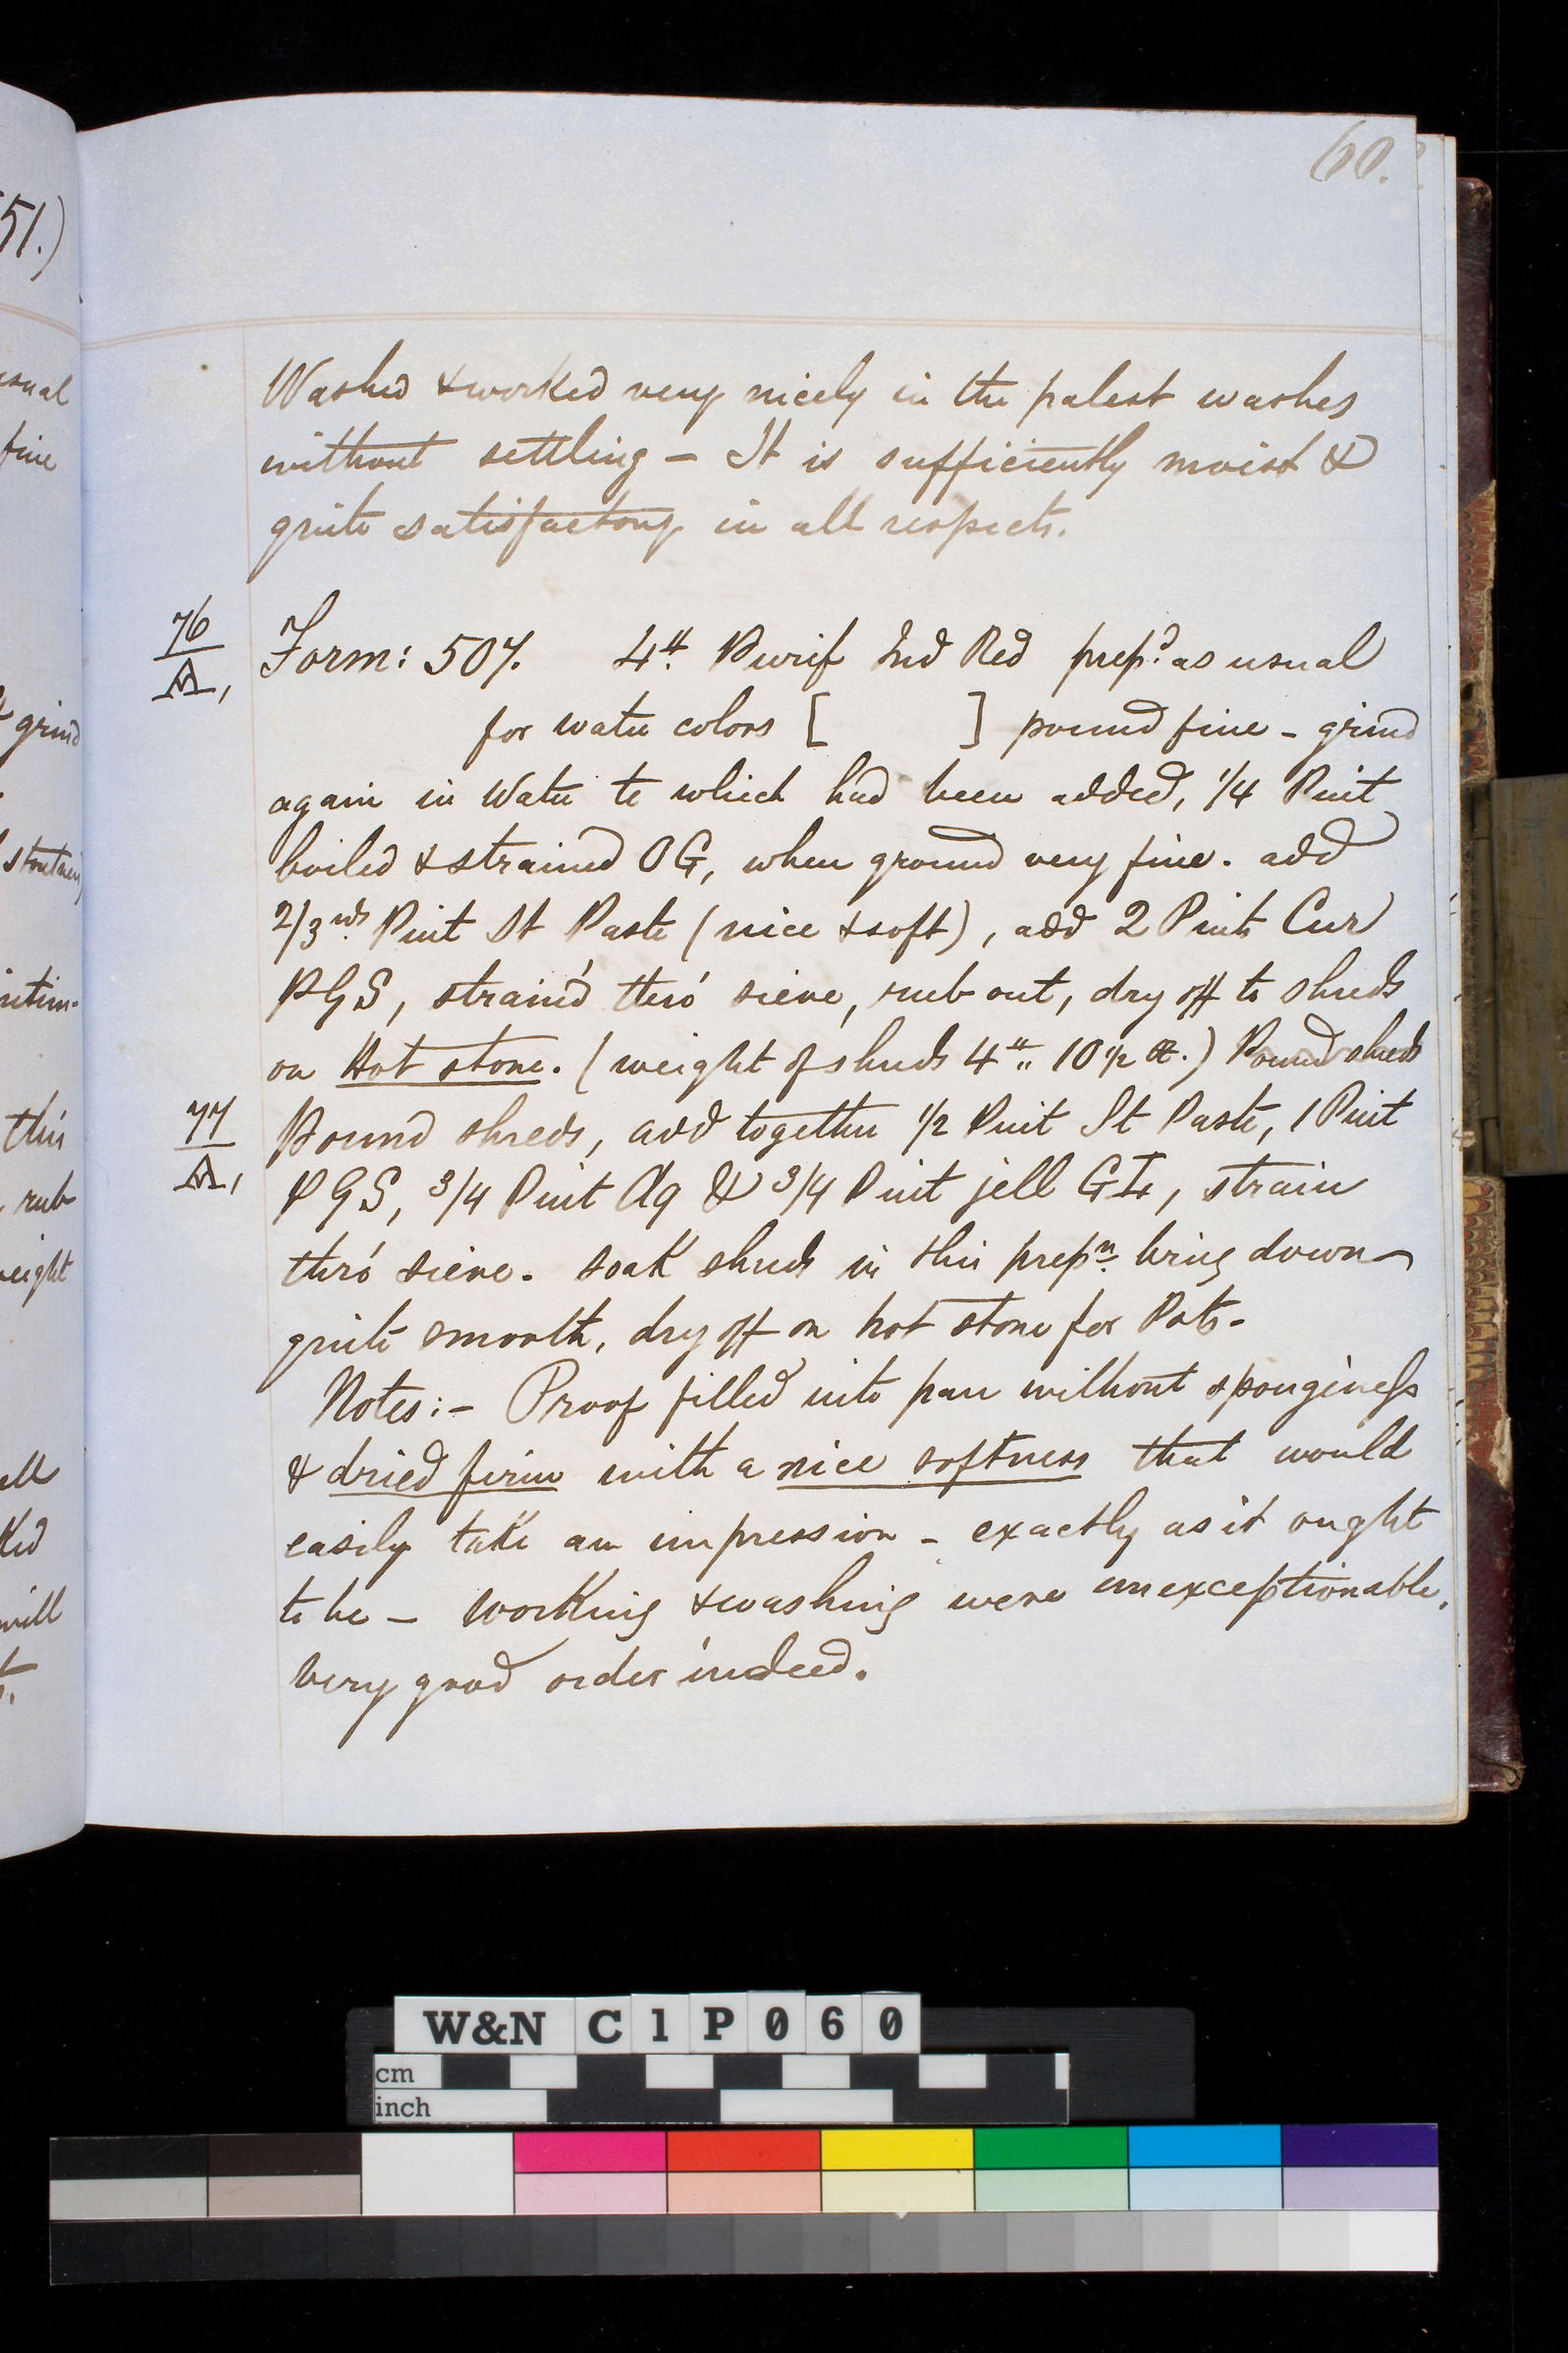 60.
51.)
Washed & worked very nicely in the palest washes
without settling – It is sufficiently moist &
quite satisfactory in all respects.
76
Form: 507. 4 lb Purif Ind Red prepd. as usual
for water colors [ ] pound fine – grind
again in Water to which had been added, 1/4 Pint
boiled & strained OG, when ground very fine. add
2/3rds. Pint St Paste (nice & soft), add 2 Pints Cur
PGS, strain'd thro' sieve, rub out, dry off to shreds
on Hot stone. (weight of shreds 4 lb " 10 1/2 oz.) Pound shreds
77
Pound shreds, add together 1/2 Pint St Paste, 1 Pint
PGS, 3/4 Pint Aq & 3/4 Pint jell GL, strain
thro' sieve. soak shreds in this prepn. bring down
quite smooth, dry off on hot stone for Pots –
Notes: – Proof filled into pan without sponginess
& dried firm with a nice softness that would
easily take an impression – exactly as it ought
to be – working & washing were unexceptionable.
very good order indeed.
usual
fine
grind
this
rub
weight
will
W&N C1P060
cm
inch